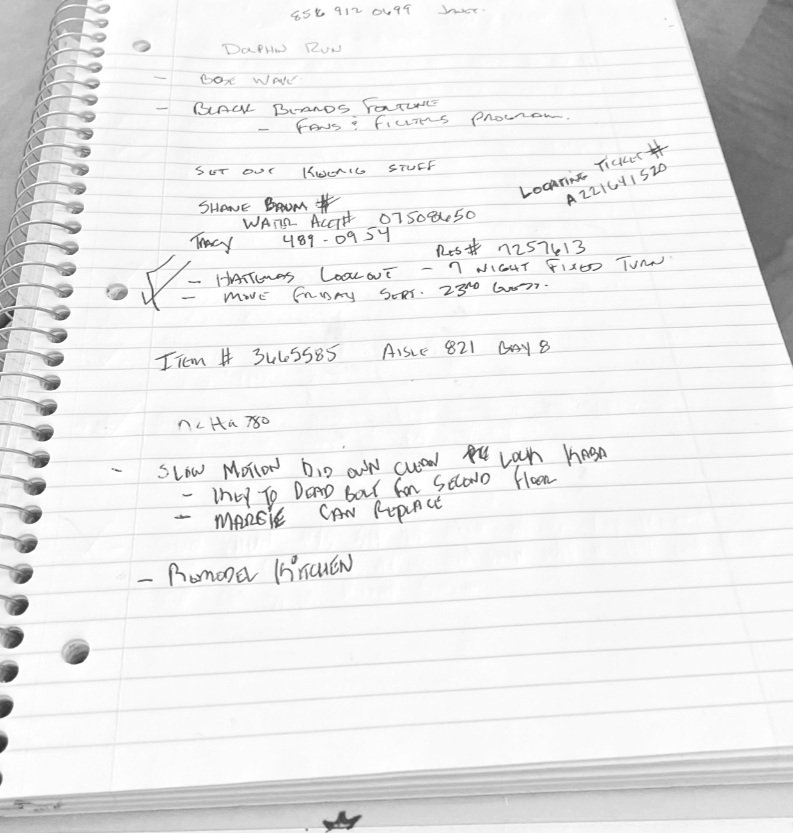 856 912 0699 Janet.
DOLPHIN RUN
- BOX WAVE
- BLACK BEARDS FORTUNE
- FANS & FILTERS PROGRAM.
SET OUT KUERIG STUFF
LOCATING TICKET #
A221641520
SHANE BAUM #
WATER ACCT# 07508650
TRACY 489-0954
RES# 7257613
- HATTERAS LOOKOUT - 7 NIGHT FIXED TURN.
- MOVE FRIDAY SEPT. 23RD
ITEM # 3665585 AISLE 821 BAY 8
780
- SLOW MOTION DID OWN CLEAN LOCK KABA
- KEY TO DEAD BOLT FOR SECOND FLOOR
- MARGIE CAN REPLACE
- REMODEL KITCHEN